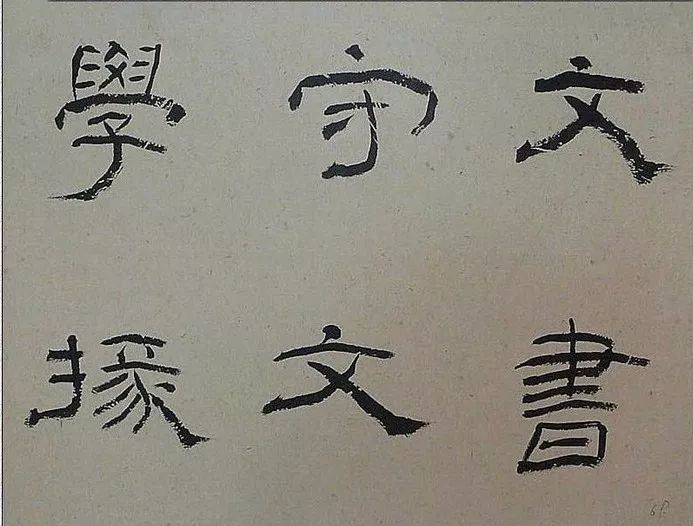 文書
守文
學掾